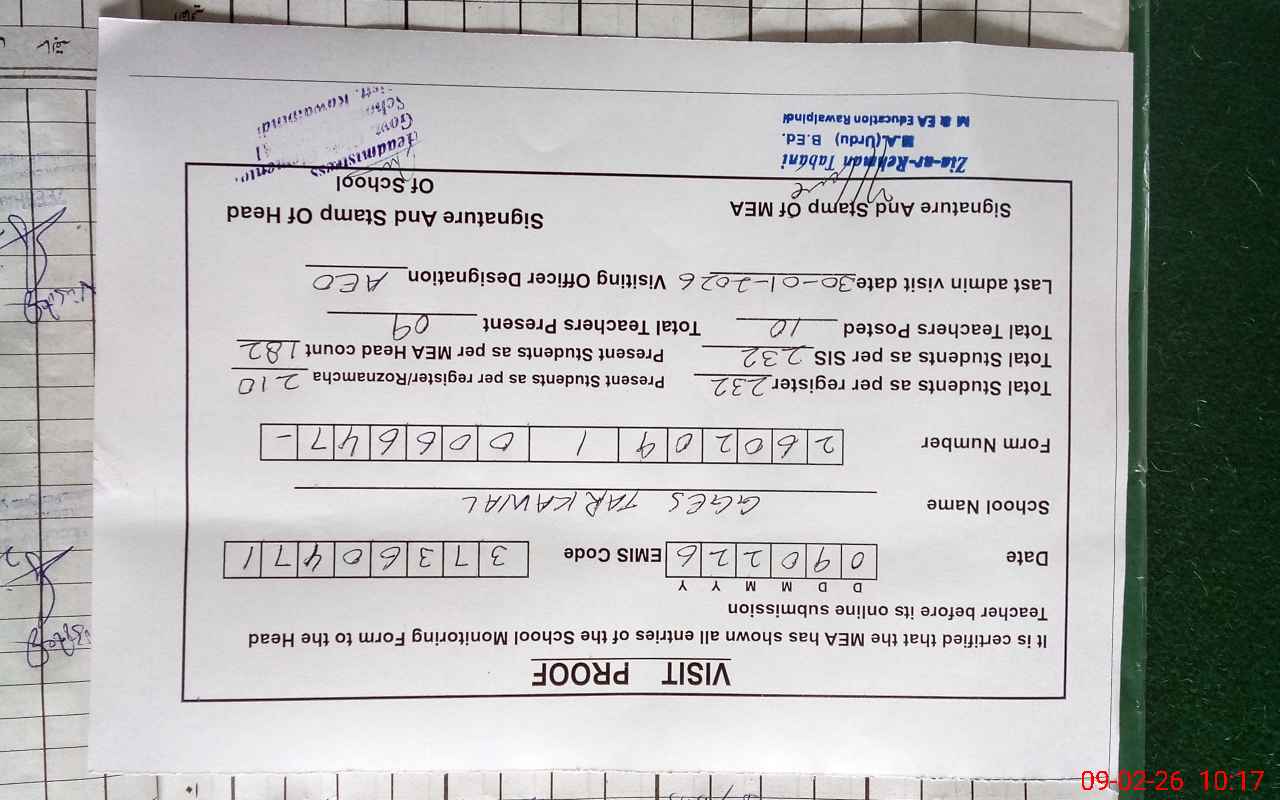 VISIT PROOF
It is certified that the MEA has shown all entries of the School Monitoring Form to the Head
Teacher before its online submission
D D M M Y Y
Date 0 9 0 2 2 6 EMIS Code 3 7 3 6 0 4 7 1
School Name GGES TARKAWAL
Form Number 2 6 0 2 0 9 1 0 0 6 6 4 7 -
Total Students as per register 232 Present Students as per register/Roznamcha 210
Total Students as per SIS 232 Present Students as per MEA Head count 182
Total Teachers Posted 10 Total Teachers Present 09
Last admin visit date 30-01-2026 Visiting Officer Designation AEO
Signature And Stamp Of MEA Signature And Stamp Of Head
Of School
Zia-ur-Rehman Tabani
M.A (Urdu) B.Ed.
M & EA Education Rawalpindi
Headmistress
09-02-26 10:17